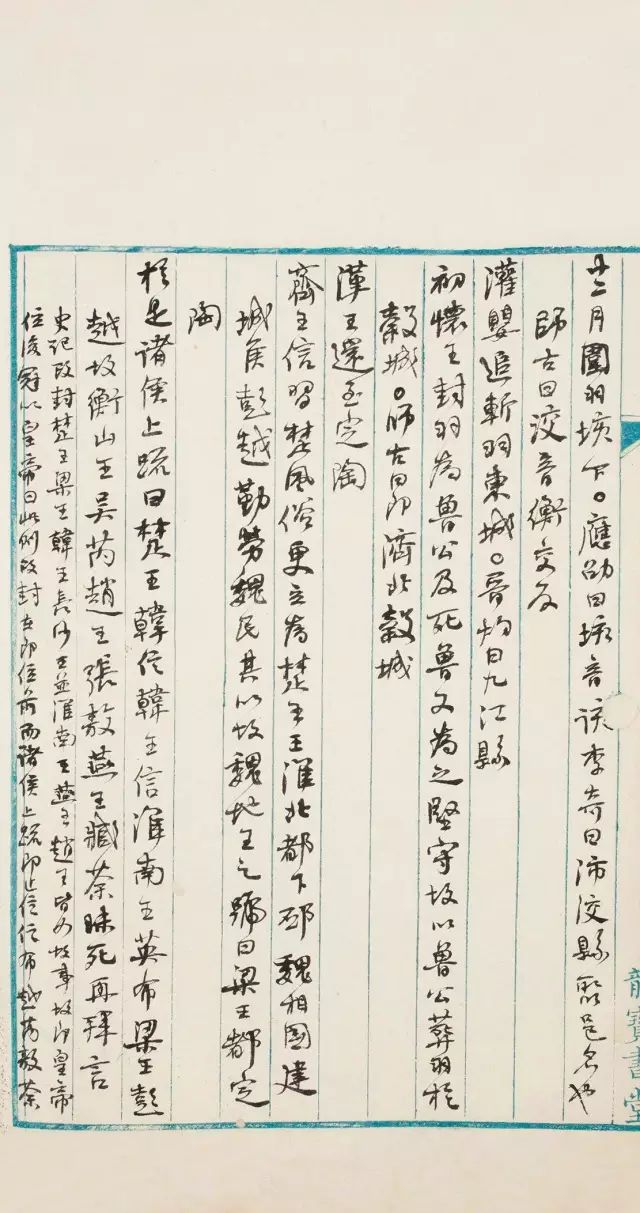 十二月圍羽垓下。應劭曰垓音該李奇曰沛洨縣聚邑名也
師古曰洨音衡交反
灌嬰追斬羽東城。晉灼曰九江縣
初懷王封羽為魯公及死魯又為之堅守故以魯公葬羽於
穀城。師古曰即濟北穀城
漢王還至定陶
齊王信習楚風俗更立為楚王王淮北都下邳魏相國建
城侯彭越勤勞魏民其以故魏地王之號曰梁王都定
陶
於是諸侯上疏曰楚王韓信韓王信淮南王英布梁王彭
越故衡山王吳芮趙王張敖燕王臧荼昧死再拜言
史記改封楚王梁王韓王長沙王並淮南王燕王趙王皆如故事故即皇帝
位後冠以皇帝曰此則改封在即位前而諸侯上疏即止信信布越芮敖荼
龍寶書堂